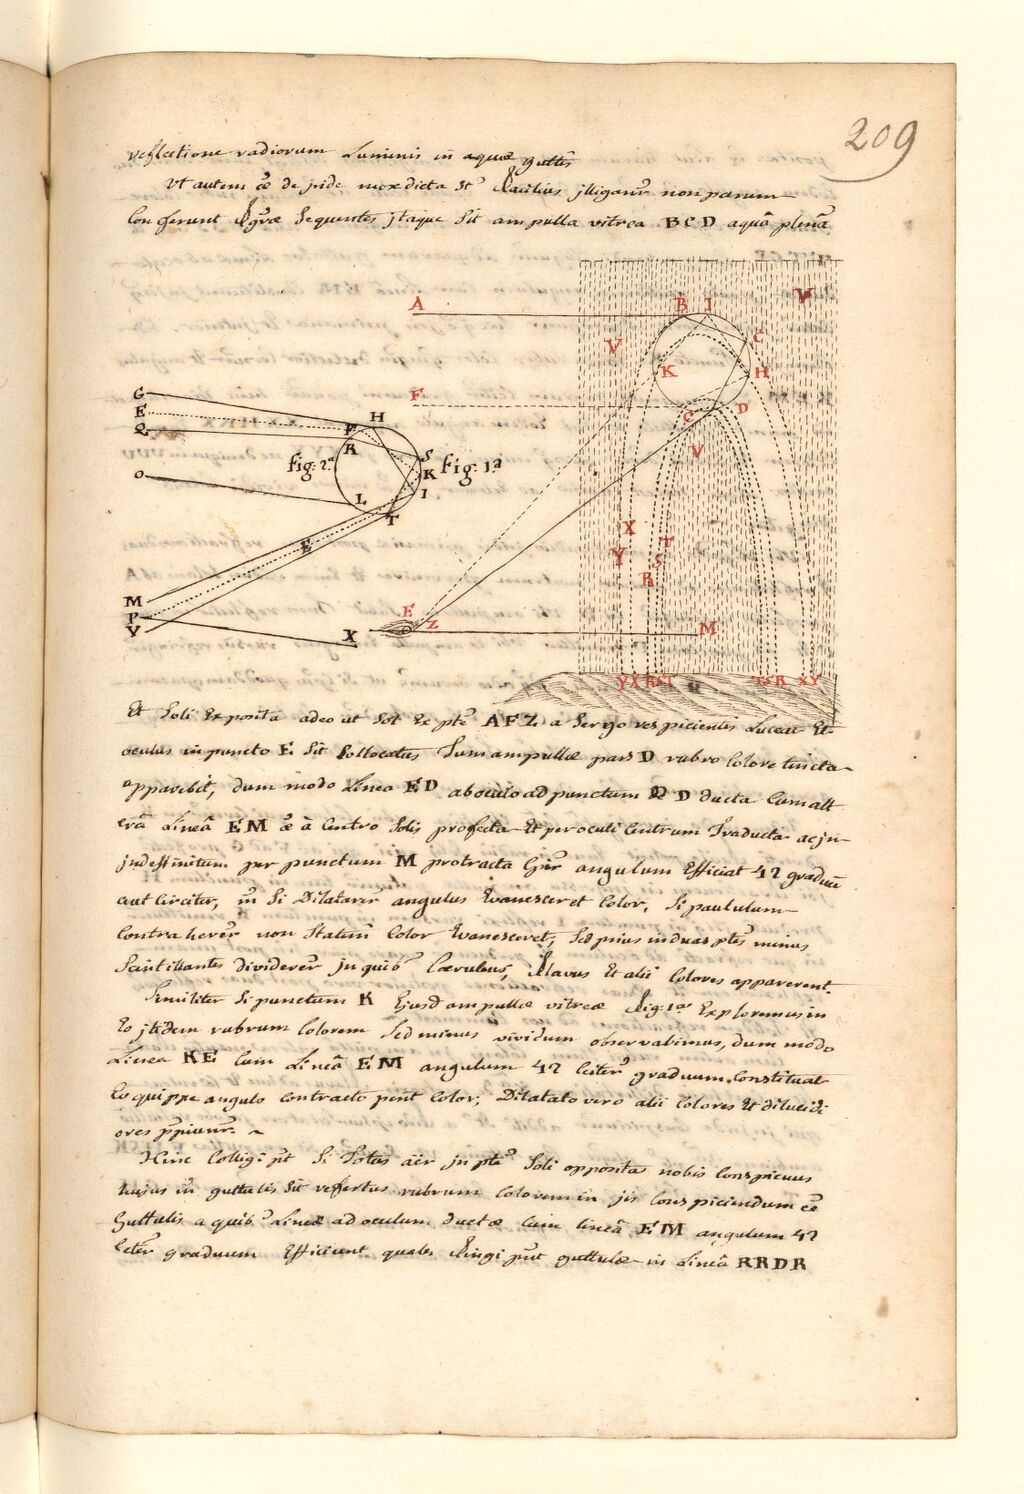 209
reflectione radiorum Luminis in aquæ guttis
Ut autem õe de jride mox dicta st' facilius jlliganr̃ non parum
Conferunt figuræ Sequentes jtaque Sit ampulla vitrea BCD aquâ plenã
A B I V
V C
K H
F
C D
V
G
E H
Q F
R S
fig: 2.a K fig: 1a
O I
L
T
X T
Y S
R
E
M E
P Z M
V X
YX RST TSR XY
Et Soli Exposita adeo ut Sol Ex pte AFZ a tergo respicientis Luceat Et
oculus in puncto E Sit Collocatus Tum ampullæ pars D rubro Colore tincta
apparebit, dum modo Linea ED ab oculo ad punctum D ducta Cum alt
erâ Lineâ EM à Centro Solis profecta Et per oculi Centrum Traducta ac jn
jndeffinitum per punctum M protracta angulum Efficiat 42 graduũ
aut Circiter, Si Dilatarer angulus Evanesceret Color, Si paululum
Contraherer̃ non Statim Color Evanesceret, Sed prius in duas ptes minus
Scintillantes dividerer̃ jn quib' Cœruleus, flavus Et alii Colores apparerent.
Similiter Si punctum K Ejusd ampullæ vitreæ fig: 1æ Exploremus in
Eo jtidem rubrum Colorem Sed minus vividum observabimus, dum modo
Linea KE Cum Lineâ EM angulum 42 Cciter' graduum Constituat
Eo quippe angulo Contracto perit Color, Dilatato vero alii Colores Et dilucidi
ores
Hinc Colligi pt Si Totus aër jn pte Soli opposita nobis Conspicuus
hujus guttulis Sit refertus rubrum Colorem in jis Conspiciendum eẽ
Guttulis a quib' Lineæ ad oculum ductæ Cum lineâ EM angulum 42
Cciter graduum Efficiunt quales fingi pnt guttulæ in Lineâ RRDR